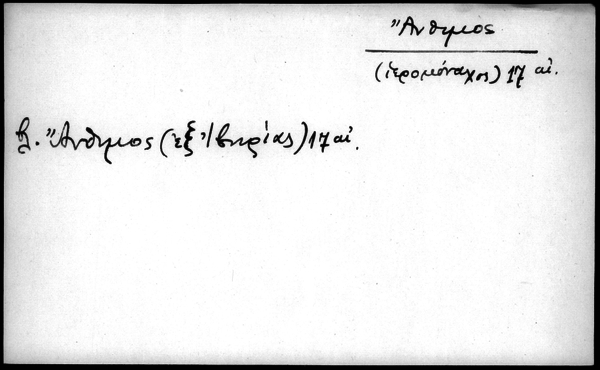 Ἄνθιμος
(ἱερομόναχος) 17 αἰ.
β. Ἄνθιμος (ἐξ Ἰβηρίας) 17 αἰ.